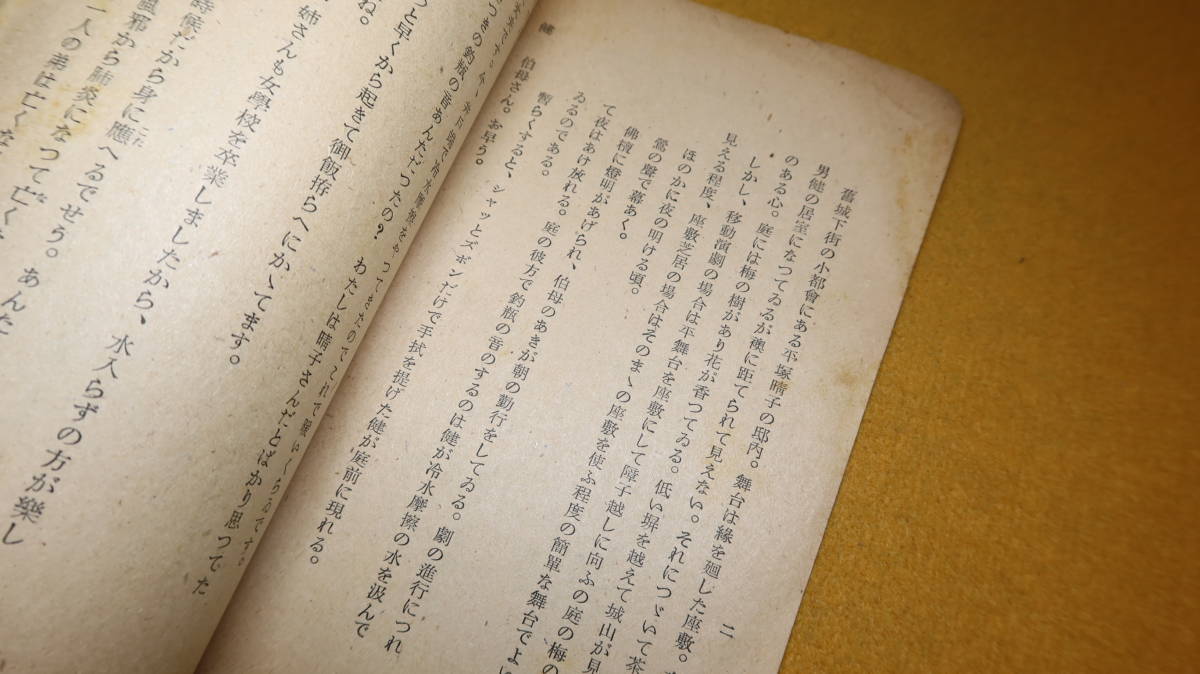 二
舊城下街の小都會にある平塚晴子の邸内。舞台は緣を廻した座敷。
男健の居室になつてゐるが襖に距てられて見えない。それにつゞいて茶
のある心。庭には梅の樹があり花が香つてゐる。低い塀を越えて城山が見
見える程度、座敷芝居の場合は平舞台を座敷にして障子越しに向ふの庭の梅の
しかし、移動演劇の場合はそのまゝの座敷を使ふ程度の簡單な舞台でよい
ほのかに夜の明ける頃。
鶯の聲で幕あく。
佛檀に燈明があげられ、伯母のあきが朝の勤行をしてゐる。劇の進行につれ
て夜はあけ放れる。庭の彼方で釣瓶の音のするのは健が冷水摩擦の水を汲んで
ゐるのである。
暫らくすると、シャッとズボンだけで手拭を提げた健が庭前に現れる。
健 伯母さん。お早う。
つきの釣瓶の音あんただつたの？ わたしは晴子さんだとばかり思つてた
ね。
つと早くから起きて御飯拵らへにかゝてます。
姉さんも女學校を卒業しましたから、水入らずの方が樂し
時候だから身に應へるでせう。あんた
風邪から肺炎になつて亡くな
一人の弟は亡くな